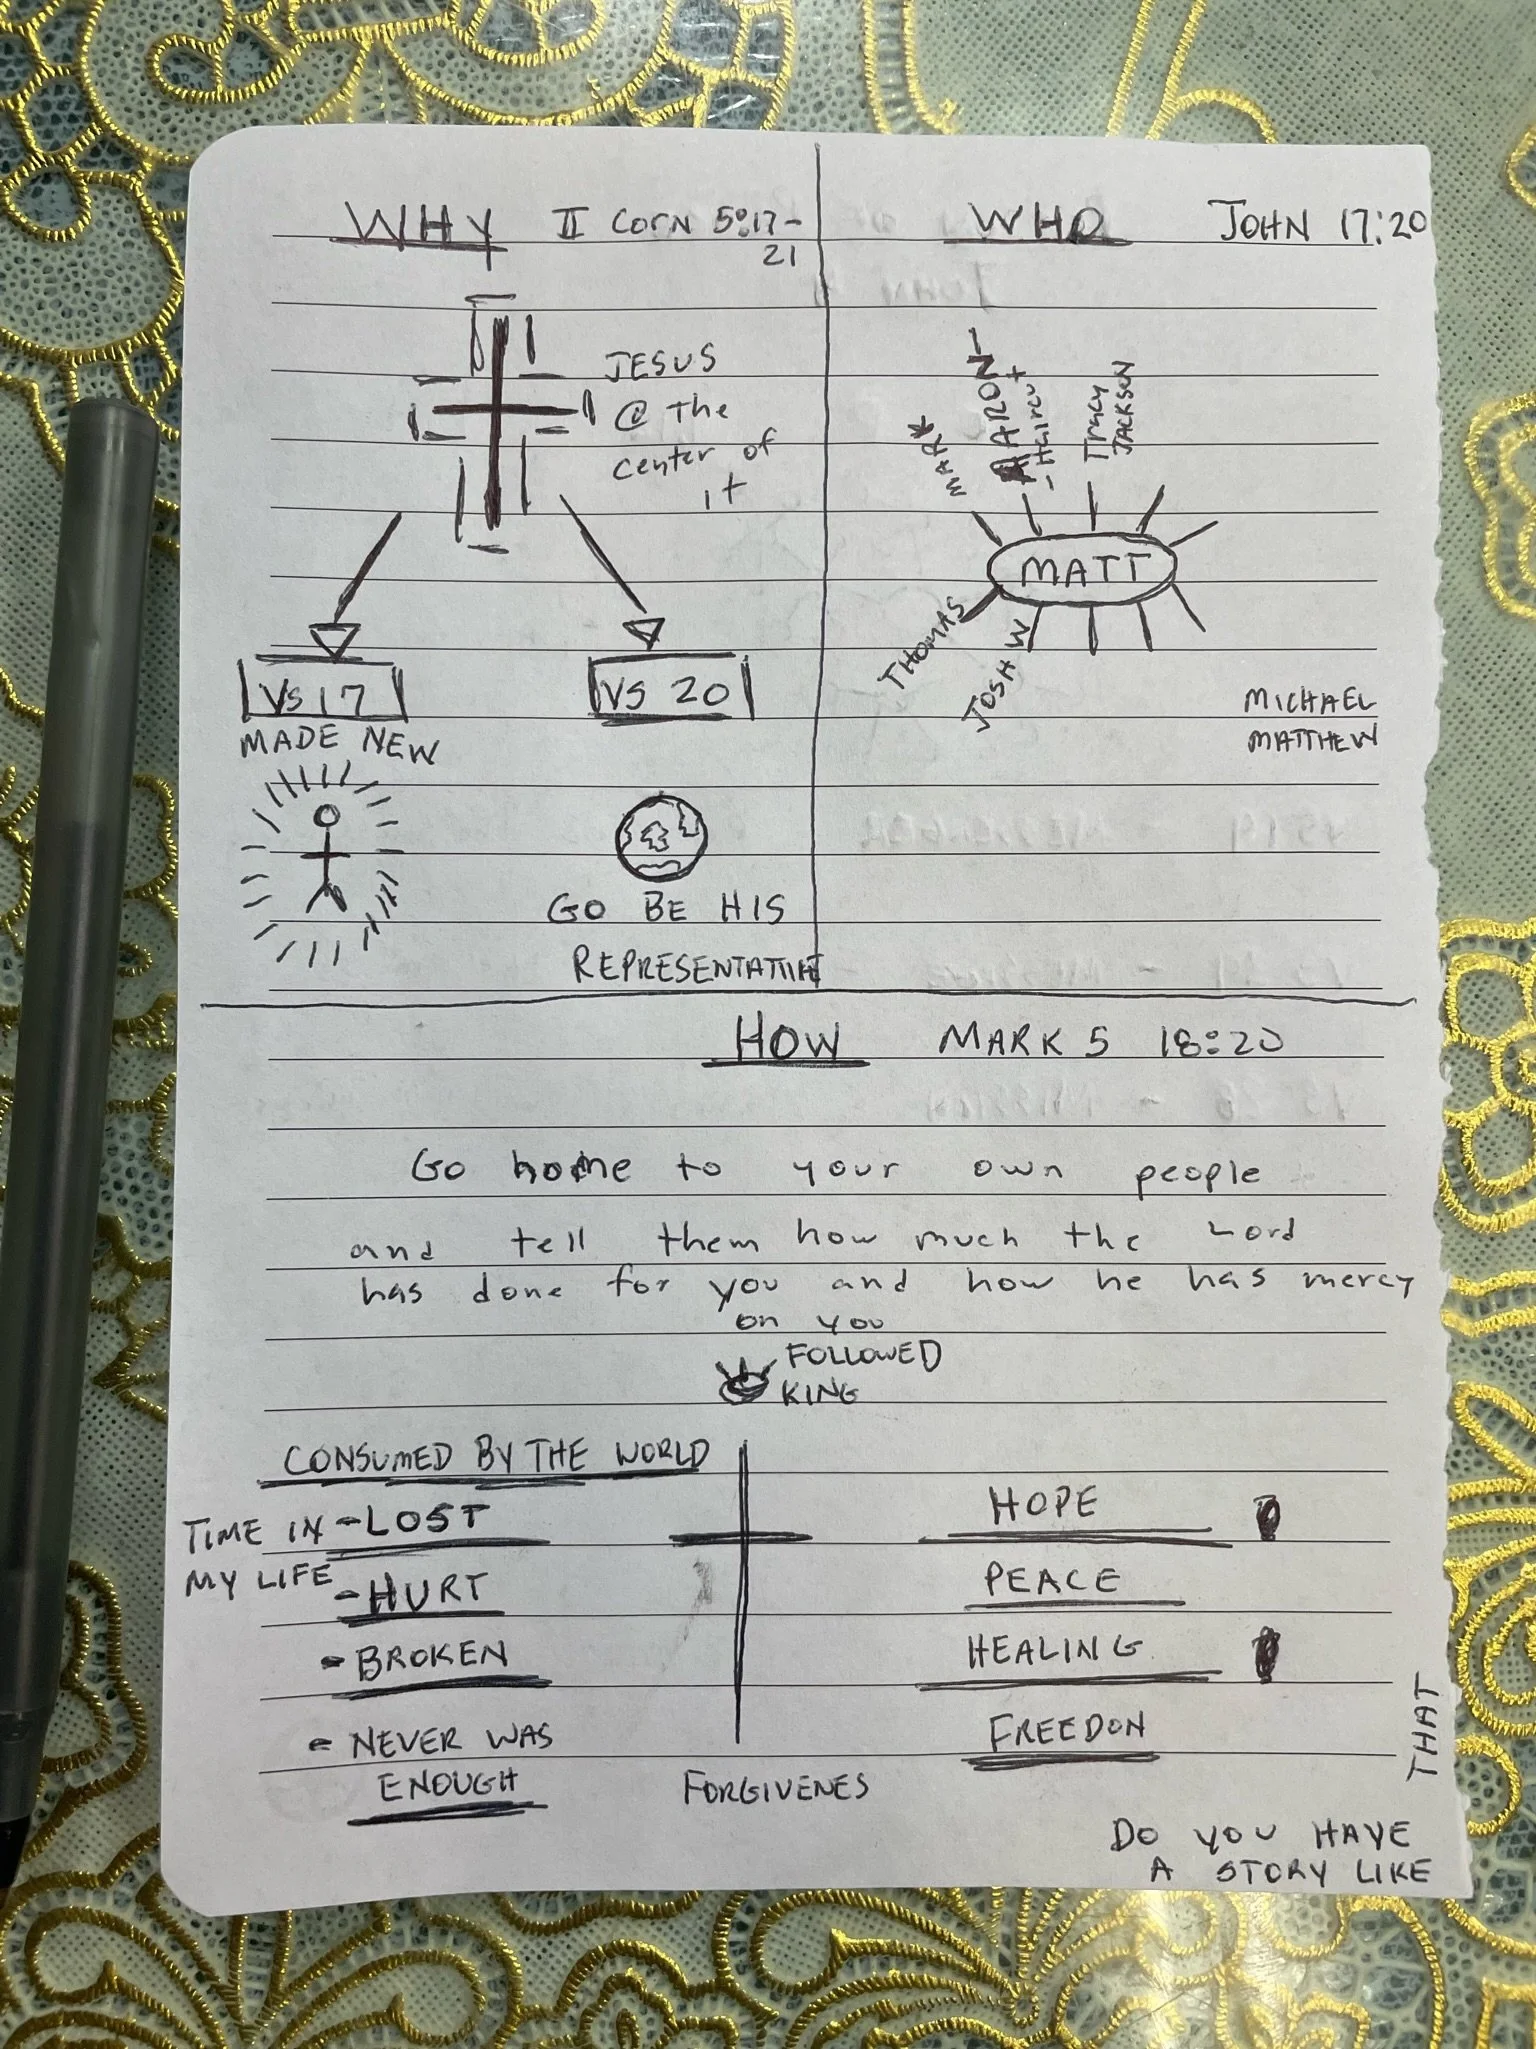 WHY II CorN 5:17-
21
JESUS
@ the
center of
it
Vs 17
VS 20
MADE NEW
GO BE HIS
REPRESENTATIVE
WHO JOHN 17:20
MARK
AARON-
-Haircut
Tracy
JACKSON
MATT
THOMAS
JOSH W
MICHAEL
MATTHEW
HOW MARK 5 18:20
Go home to your own people
and tell them how much the Lord
has done for you and how he has mercy
on you
FOLLOWED
KING
CONSUMED BY THE WORLD
TIME IN
MY LIFE
-LOST
-HURT
-BROKEN
- NEVER WAS
ENOUGH
FORGIVENES
HOPE
PEACE
HEALING
FREEDON
DO YOU HAVE
A STORY LIKE
THAT